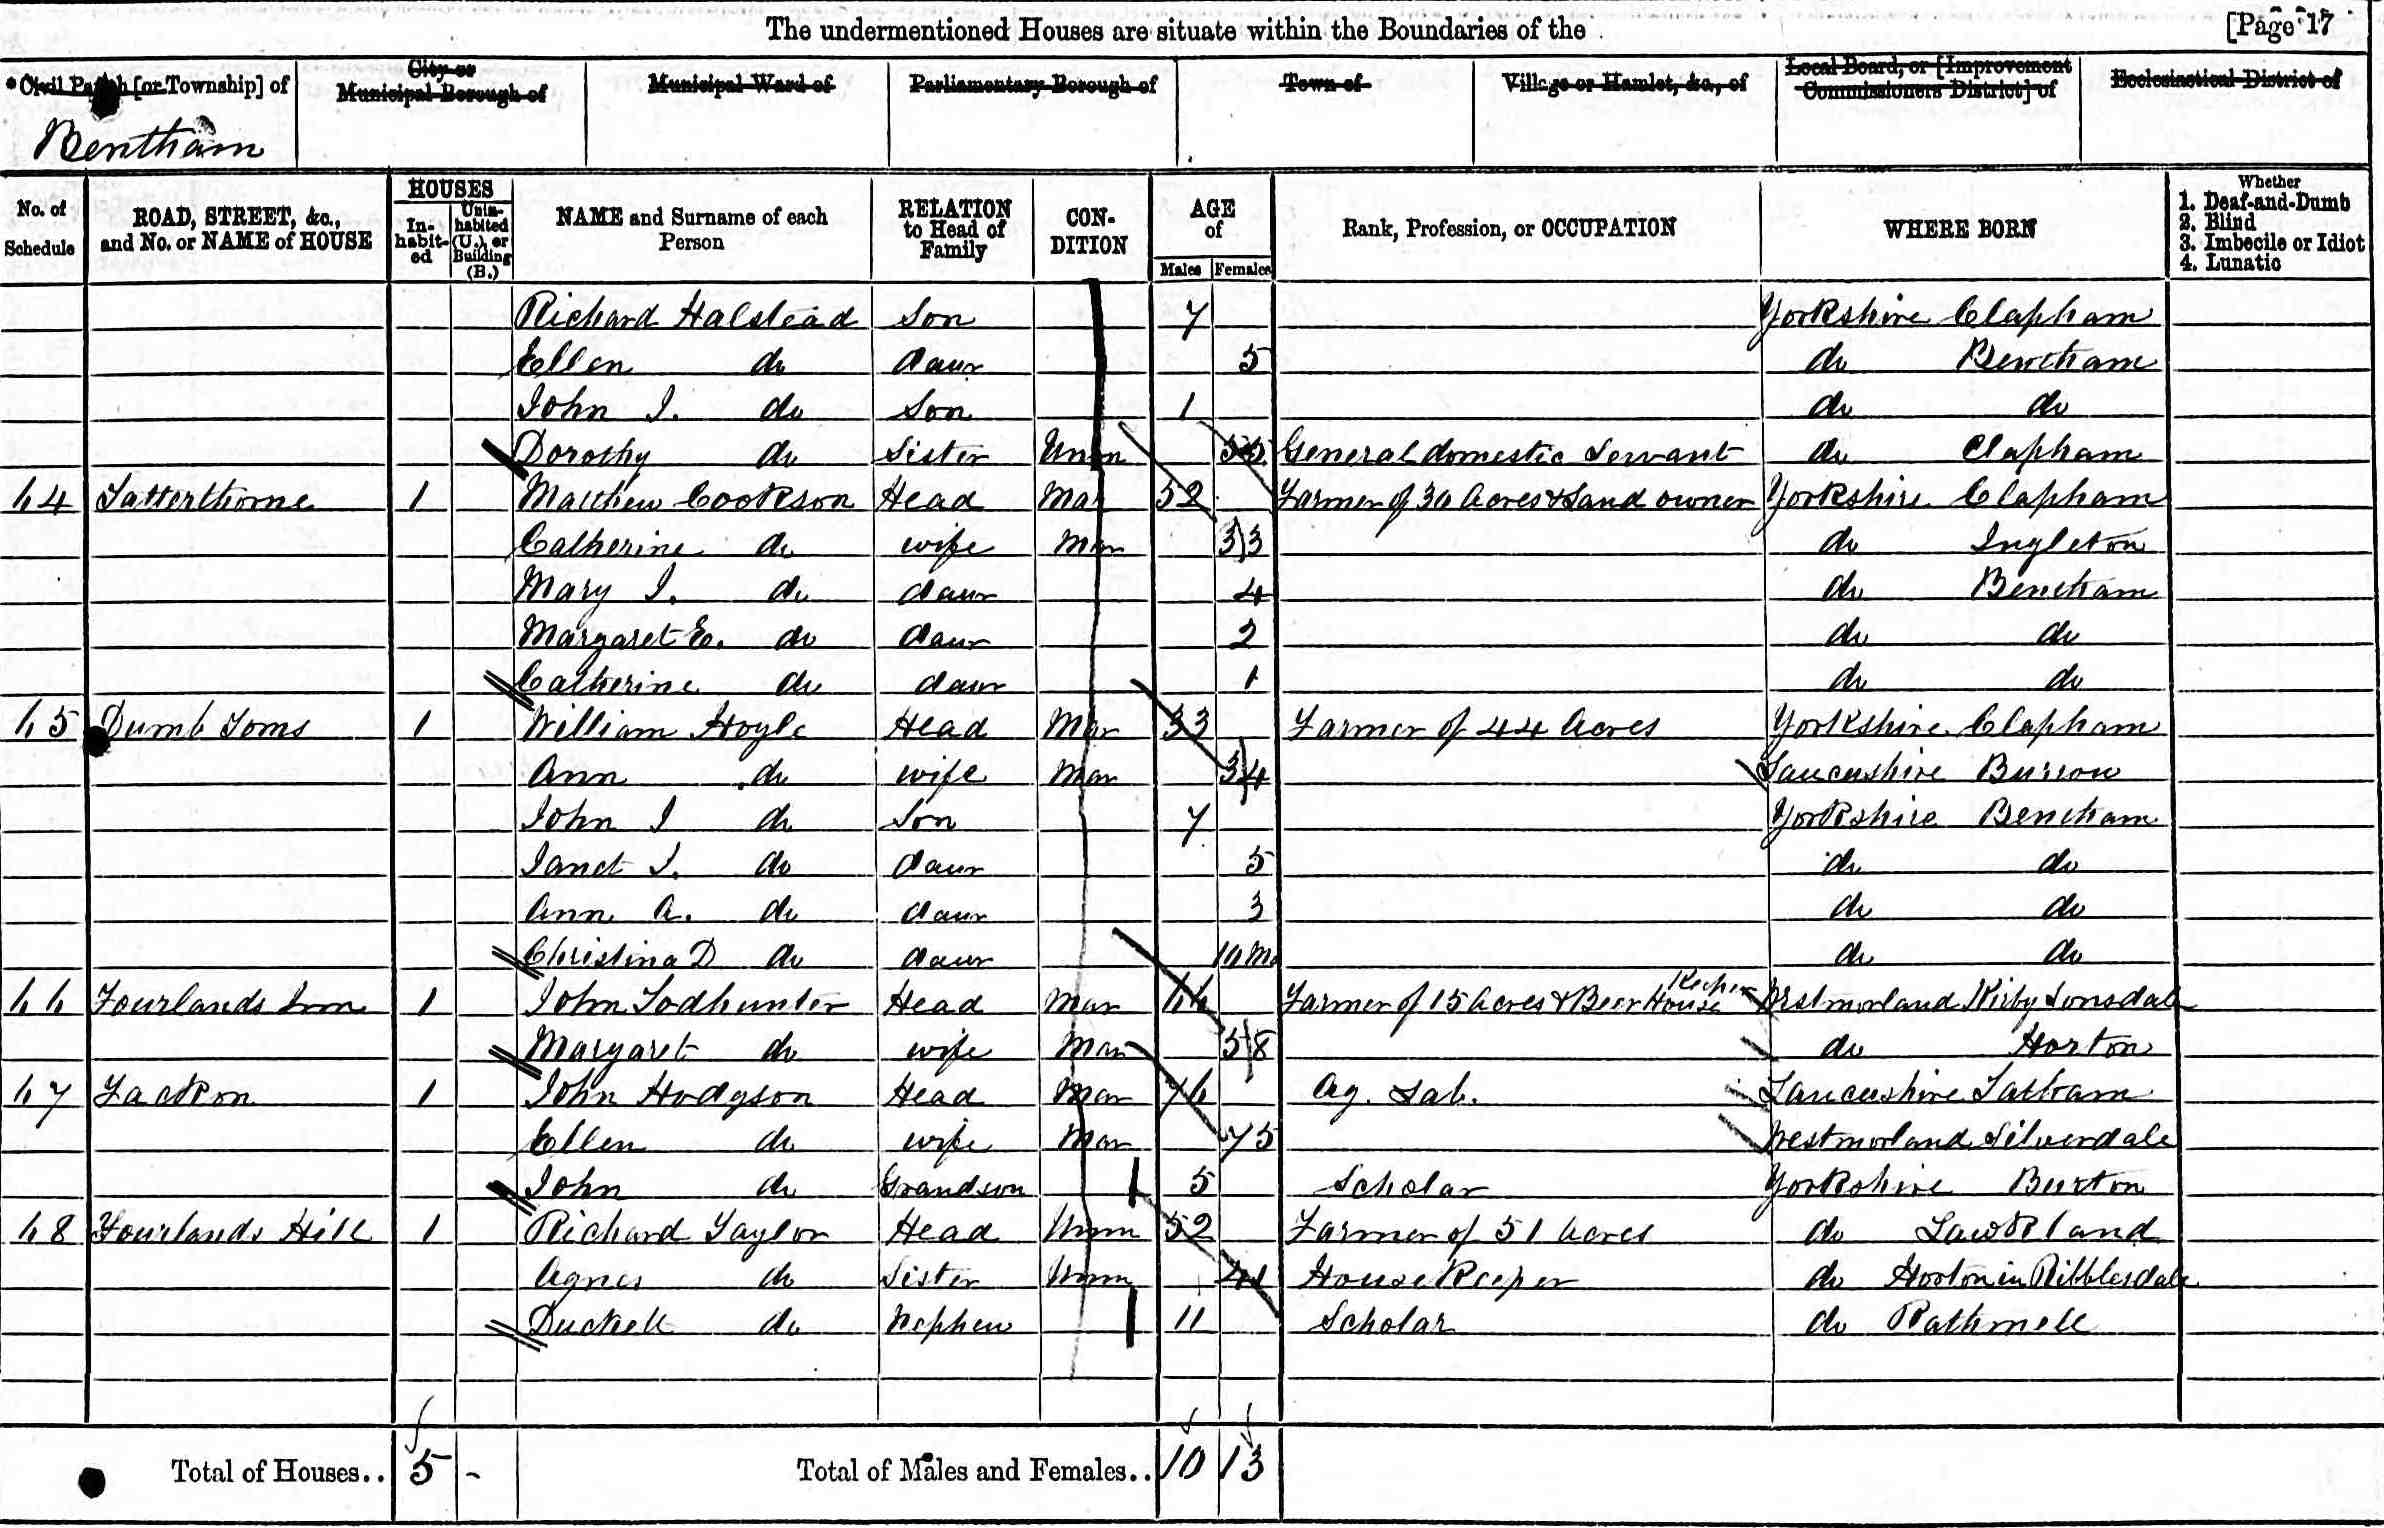 The undermentioned Houses are situate within the Boundaries of the [Page 17
Civil Parish [or Township] of City or Municipal Borough of Municipal Ward of Parliamentary Borough of Town of Village or Hamlet, &c., of Local Board, or [Improvement Commissioners District] of Ecclesiastical District of
Bentham
No. of Schedule ROAD, STREET, &c., and No. or NAME of HOUSE HOUSES Inhabited Uninhabited (U.), or Building (B.) NAME and Surname of each Person RELATION to Head of Family CONDITION AGE of Males Females Rank, Profession, or OCCUPATION WHERE BORN Whether 1. Deaf-and-Dumb 2. Blind 3. Imbecile or Idiot 4. Lunatic
Richard Halstead Son 7 Yorkshire Clapham
Ellen do daur 5 do Bentham
John J. do Son 1 do do
Dorothy do Sister Unm General domestic Servant do Clapham
64 Tatterthorne 1 Matthew Cookson Head Mar 52 Farmer of 30 Acres & Land owner Yorkshire Clapham
Catherine do wife Mar 33 do Ingleton
Mary J. do daur 4 do Bentham
Margaret E. do daur 2 do do
Catherine do daur 1 do do
65 Dumb Toms 1 William Hoyle Head Mar 33 Farmer of 44 Acres Yorkshire Clapham
Ann do wife Mar 34 Lancashire Burrow
John J do Son 7 Yorkshire Bentham
Janet J. do daur 5 do do
Ann A. do daur 3 do do
Christina D do daur 10 Mo do do
66 Fourlands Inn 1 John Todhunter Head Mar 66 Farmer of 15 Acres & Beer House Keeper Westmorland Kirby Lonsdale
Margaret do wife Mar 58 do Horton
67 Lackon 1 John Hodgson Head Mar 76 Ag. Lab. Lancashire Tatham
Ellen do wife Mar 75 Westmorland Silverdale
John do Grandson 5 Scholar Yorkshire Burton
68 Fourlands Hill 1 Richard Taylor Head Unm 52 Farmer of 51 Acres do Lawkland
Agnes do Sister Unm 41 House Keeper do Horton in Ribblesdale
Duckett do Nephew 11 Scholar do Rathmell
Total of Houses.. 5 - Total of Males and Females.. 10 13